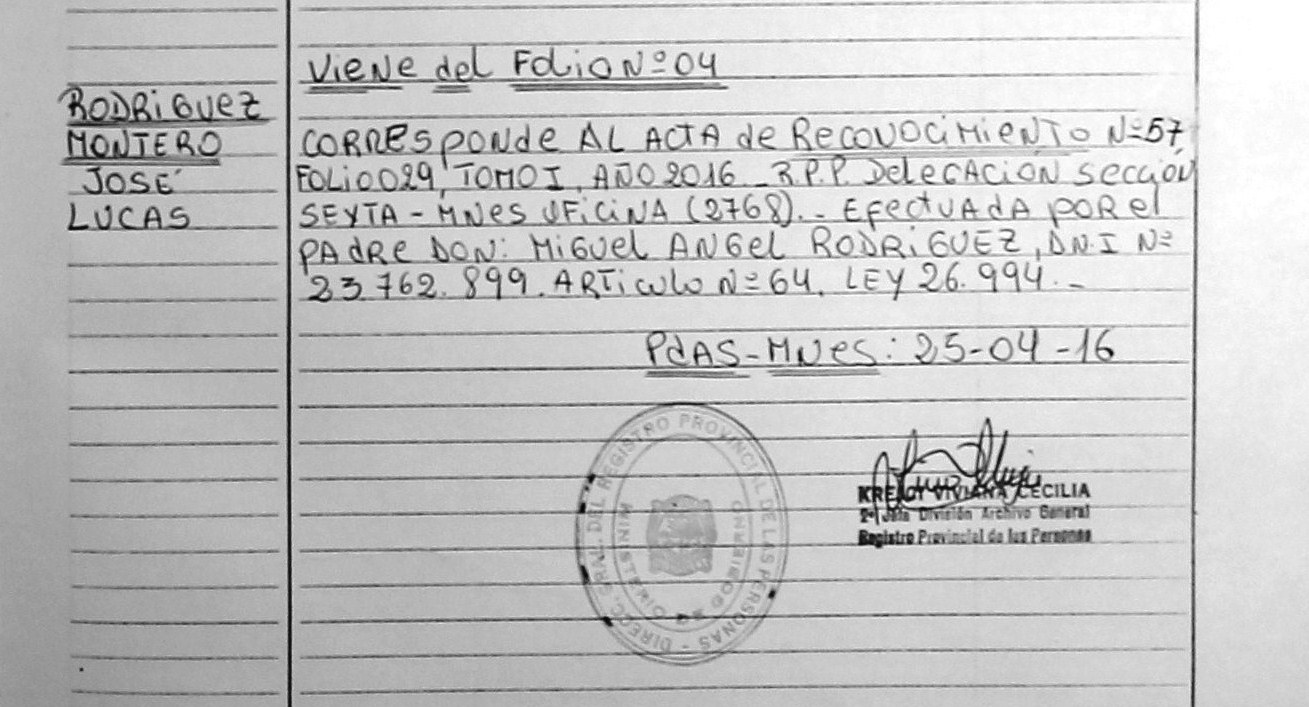 Viene del Folio Nº 04
RODRiGUEZ
MONTERO
JOSÉ
LUCAS
CORResponde AL ACTA de ReCONOCiMieNTO Nº 57,
FOLiO 029, TOMO I, AÑO 2016_ R.P.P. DeleGACIÓN Sección
SEXTA - MNes OFiciNA (2768).- EfecTUAdA POR el
PAdRe DON: MiGUel ANGel RODRiGUEZ, D.N.I Nº
23.762.899. ARTiculo Nº 64. LEY 26.994.-
PdAS-MNes: 25-04-16
DIRECC. GRAL. DEL REGISTRO PROVINCIAL DE LAS PERSONAS -
MINISTERIO DE GOBIERNO
VIVIANA CECILIA
División Archivo General
Registro Provincial de las Personas